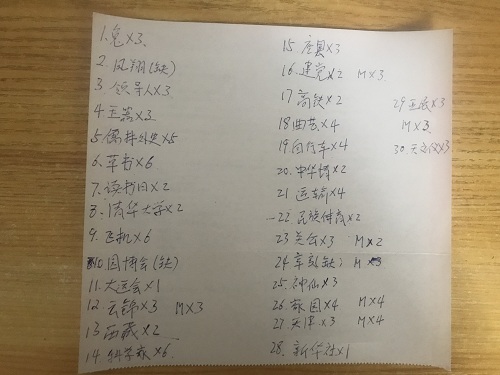 1.兔×3.
2.凤翔(缺)
3.领导人×3
4.玉器×3
5.儒林外史×5
6.草书×6
7.读书日×2
8.清华大学×2
9.飞机×6
10.园博会(缺)
11.大运会×1
12.云锦×3 M×3
13.西藏×2
14.科学家×6
15.×3
16.建党×2 M×3
17高铁×2
18曲苏×4
19自行车×4
20.中华博×2
21运×4
22.民族体育×2
23关公×3 M×2
24.军(缺) M×3
25.神仙×3
26.歌园×4 M×4
27.天津×3 M×4
28.新华社×1
29五×3
M×3
30.天文×3